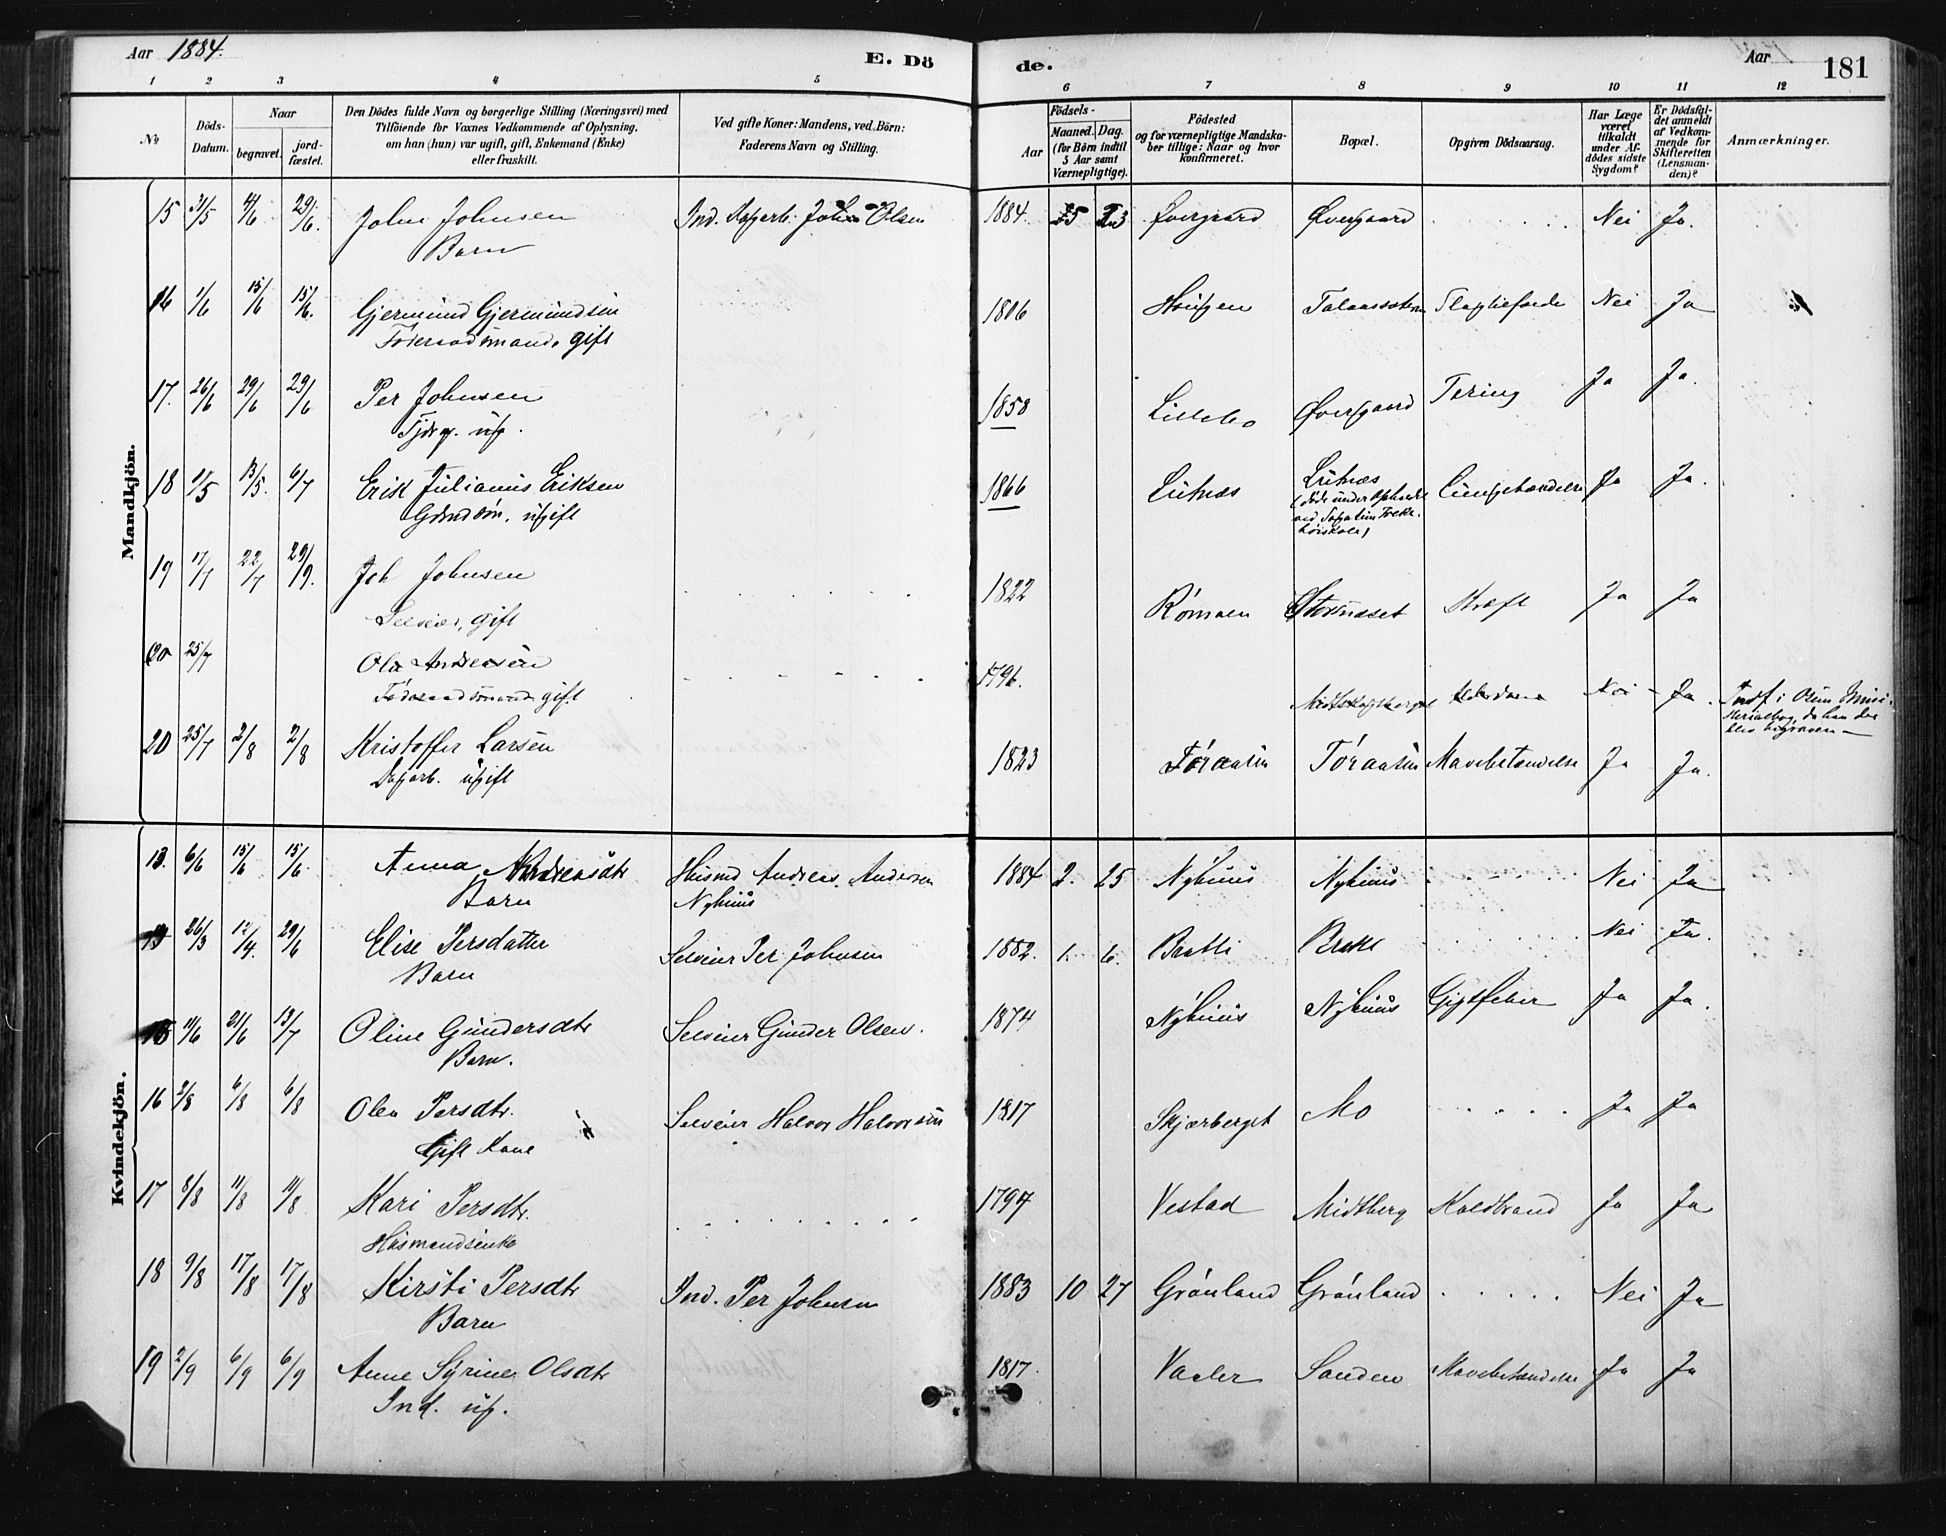 Aar 1884.
E. Dö
de.
Aar
181
1 2 3 4 5 6 7 8 9 10 11 12
No
Döds-
Datum.
Naar
begravet.
jord-
fæstet.
Den Dödes fulde Navn og borgerlige Stilling (Næringsvei) med
Tilföiende for Voxnes Vedkommende af Oplysning,
om han (hun) var ugift, gift, Enkemand (Enke)
eller fraskilt.
Ved gifte Koner: Mandens, ved Börn:
Faderens Navn og Stilling.
Födsels-
Aar
Maaned.
Dag.
(for Börn indtil
5 Aar samt
Værnepligtige).
Födested
og for værnepligtige Mandska-
ber tillige: Naar og hvor
konfirmeret.
Bopæl.
Opgiven Dödsaarsag.
Har Læge
været
tilkaldt
under Af-
dödes sidste
Sygdom?
Er Dödsfal-
det anmeldt
af Vedkom-
mende for
Skifteretten
(Lensman-
den)?
Anmærkninger.
Mandkjön.
15 31/5 4/6 29/6. John Johnsen Ind. Dagarb. John Olsen 1884. 5 23 Øvergaard Øvergaard Nei Ja.
Barn
16 1/6 15/6 15/6. Gjermund Gjermundsen 1806 Haugen Slagtilfælde Nei Ja
Føderaadsmand, gift
17. 26/6 29/6 29/6 Per Johnsen 1858 Lillebo Øvergaard Tering Ja Ja.
Tjdrg. ug.
18 /5 13/5. 6/7 Erik Julianus Eriksen 1866 Lutnæs Lutnæs Ja Ja.
Grdsøn, ugift
(døde under Ophold
højskole)
19 17/7 22/7 29/9. Joh Johnsen 1822 Rømoen Stornæset Kræft Ja Ja
Selveier, gift
20 25/7 Ola Andreasen 1796. Alderdom Nei Ja. Indf i Mini-
Føderaadsmand gift sterialbog, da han der
blev begraven
20 25/7 2/8 2/8 Kristoffer Larsen 1823 Føraasen Føraasen Mavebetændelse Ja Ja.
Dagarb. ugift
Kvindekjön.
13. 6/6 15/6 15/6. Anna Andreasdtr Husmd Andreas Andersen 1884 2. 25 Nyhuus Nyhuus Nei Ja
Barn Nyhuus
26/3 12/4. 29/6 Elise Persdatter Selveier Per Johnsen 1882. 1. 6. Nei Ja.
Barn
15 11/6 21/6 13/7 Oline Gundersdtr Selveier Gunder Olsen. 1874 Nyhuus Nyhuus Gigtfeber Ja Ja.
Barn.
16 2/8 6/8 6/8 Olea Persdtr. Selveier Halvor Halvorsen 1817 Skjærberget Mo Ja Ja
Gift Kone
17 8/8 11/8 11/8 Kari Persdtr. 1797 Vestad Midtberg Koldbrand Ja Ja
Husmandsenke
18 9/8 17/8 17/8 Kirsti Persdtr Ind. Per Johnsen 1883 10 27 Grønland Grønland Nei Ja
Barn
19 2/9 6/9 6/9 Anne Syrine Olsdtr 1817. Vaaler Sanden Mavebetændelse Ja Ja
Ind. ug.